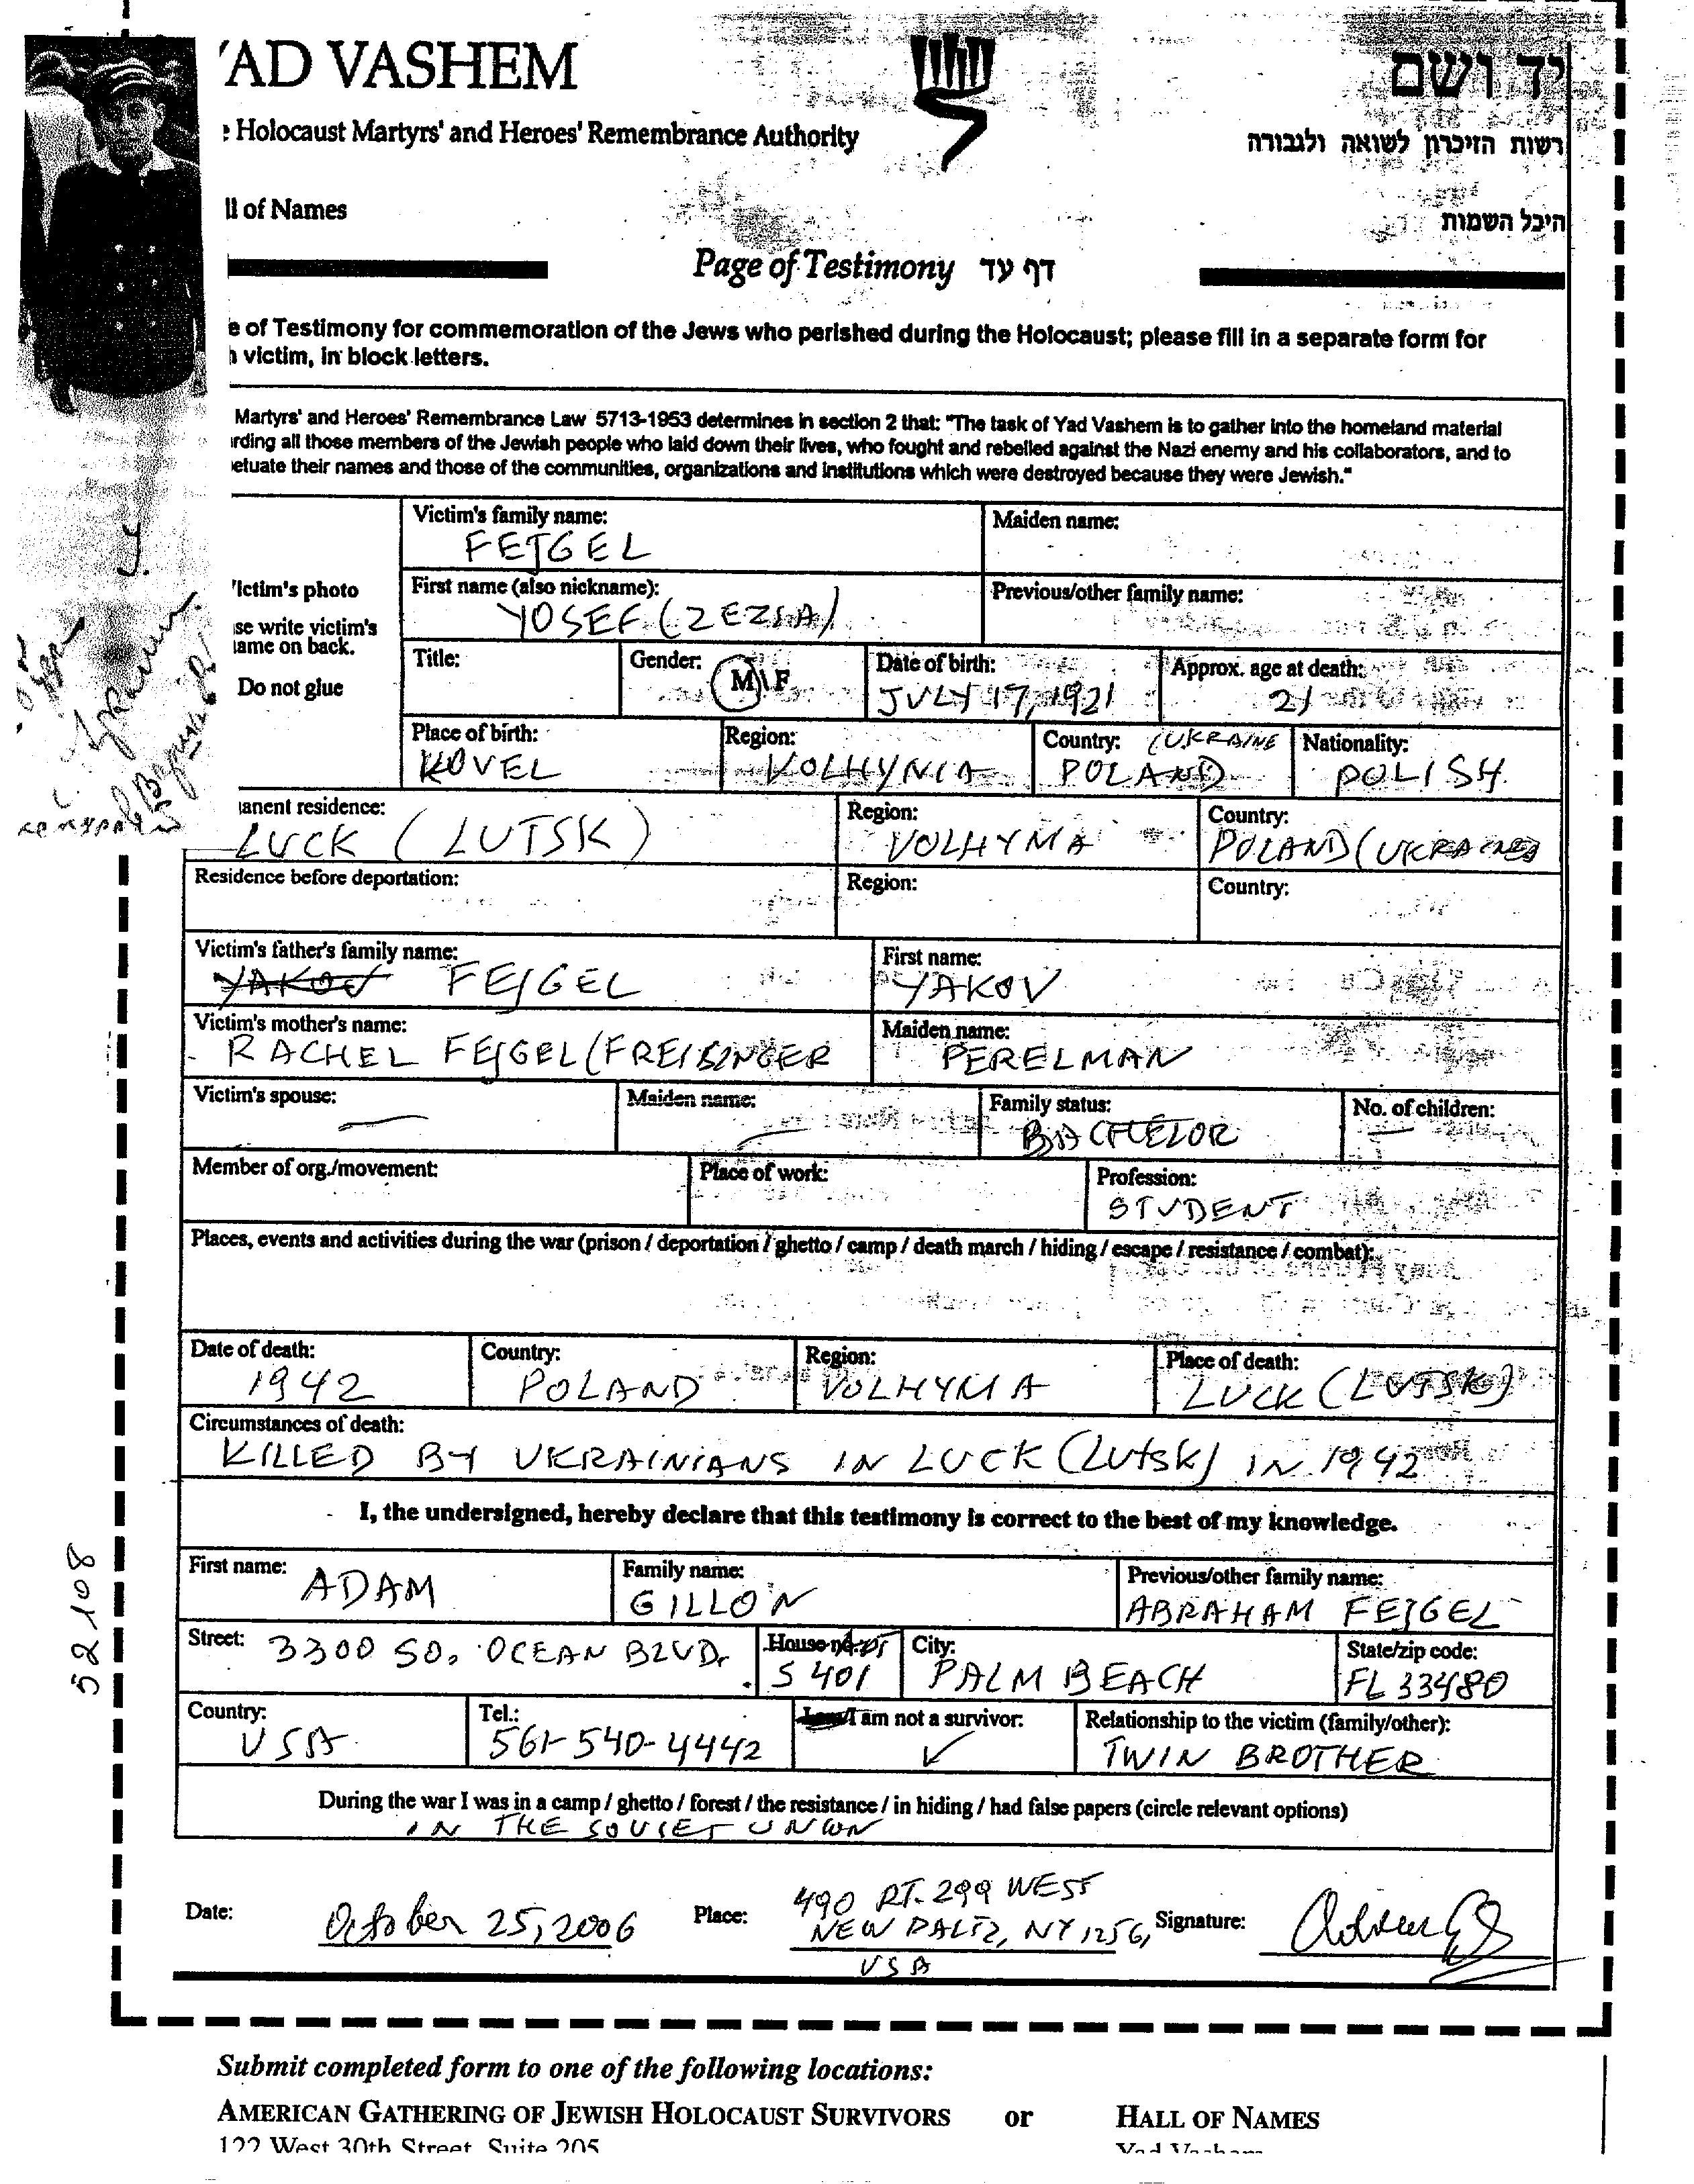 'AD VASHEM
יד ושם
Holocaust Martyrs' and Heroes' Remembrance Authority
רשות הזיכרון לשואה ולגבורה
ll of Names
היכל השמות
Page of Testimony דף עד
e of Testimony for commemoration of the Jews who perished during the Holocaust; please fill in a separate form for
h victim, in block letters.
Martyrs' and Heroes' Remembrance Law 5713-1953 determines in section 2 that: "The task of Yad Vashem is to gather into the homeland material
rding all those members of the Jewish people who laid down their lives, who fought and rebelled against the Nazi enemy and his collaborators, and to
etuate their names and those of the communities, organizations and institutions which were destroyed because they were Jewish."
Victim's family name: FEJGEL
Maiden name:
'ictim's photo
se write victim's
ame on back.
Do not glue
First name (also nickname): YOSEF (ZEZIA)
Previous/other family name:
Title:
Gender: M\F
Date of birth: JULY 17, 1921
Approx. age at death: 21
Place of birth: KOVEL
Region: VOLHYNIA
Country: (UKRAINE
POLAND
Nationality: POLISH
anent residence: LUCK (LUTSK)
Region: VOLHYNIA
Country: POLAND (UKRAINE)
Residence before deportation:
Region:
Country:
Victim's father's family name: YAKOV FEJGEL
First name: YAKOV
Victim's mother's name: RACHEL FEJGEL (FREIBINGER
Maiden name: PERELMAN
Victim's spouse: —
Maiden name: —
Family status: BACHELOR
No. of children: —
Member of org./movement:
Place of work:
Profession: STUDENT
Places, events and activities during the war (prison / deportation / ghetto / camp / death march / hiding / escape / resistance / combat):
Date of death: 1942
Country: POLAND
Region: VOLHYNIA
Place of death: LUCK (LUTSK)
Circumstances of death:
KILLED BY UKRAINIANS IN LUCK (Lutsk) IN 1942
I, the undersigned, hereby declare that this testimony is correct to the best of my knowledge.
First name: ADAM
Family name: GILLON
Previous/other family name: ABRAHAM FEJGEL
Street: 3300 SO. OCEAN BLVD.
House no. S 401
City: PALM BEACH
State/zip code: FL 33480
Country: USA
Tel.: 561-540-4442
I am not a survivor: ✓
Relationship to the victim (family/other): TWIN BROTHER
During the war I was in a camp / ghetto / forest / the resistance / in hiding / had false papers (circle relevant options)
IN THE SOVIET UNION
Date: October 25, 2006
Place: 490 RT. 299 WEST
NEW PALTZ, NY 1256,
USA
Signature:
52108
Submit completed form to one of the following locations:
AMERICAN GATHERING OF JEWISH HOLOCAUST SURVIVORS or HALL OF NAMES
122 West 30th Street, Suite 205
Yad Vashem